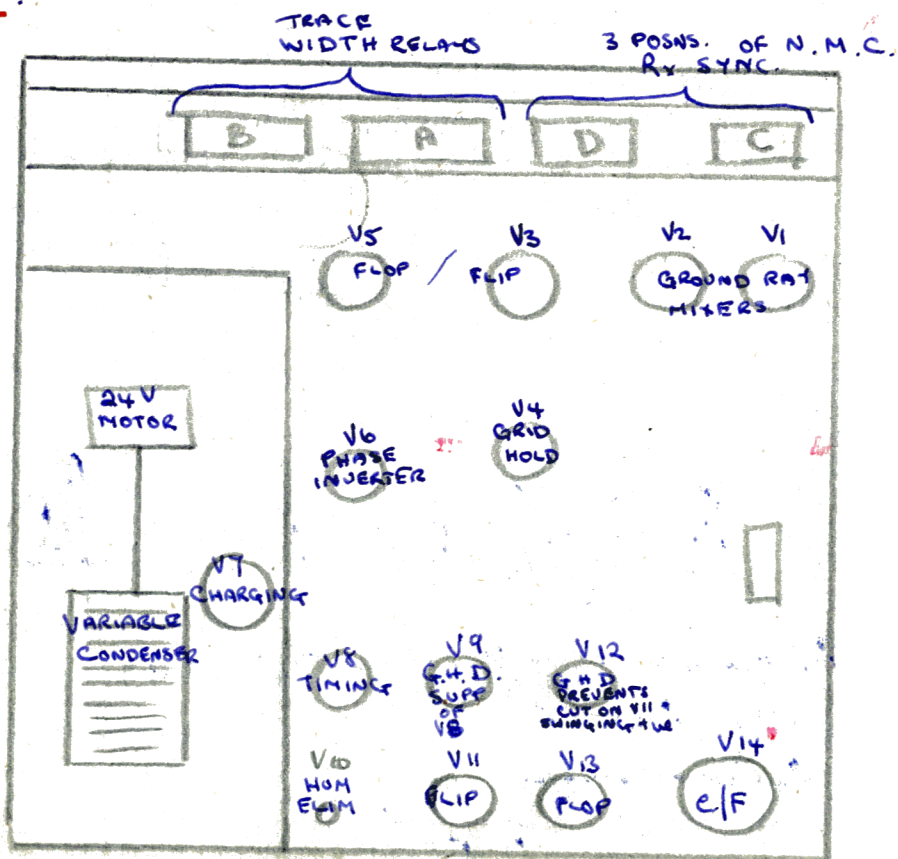 TRACE
WIDTH RELAYS
3 POSNS. OF N.M.C.
RX SYNC.
B
A
D
C
V5
FLOP
/
V3
FLIP
V2
V1
GROUND RAY
MIXERS
24V
MOTOR
V6
PHASE
INVERTER
V4
GRID
HOLD
V7
CHARGING
VARIABLE
CONDENSER
V8
TIMING
V9
G.H.D.
SUPP
OF
V8
V12
G H D
PREVENTS
CUT ON V11
SWINGING +VE
V10
HUM
ELIM
V11
FLIP
V13
FLOP
V14
C/F